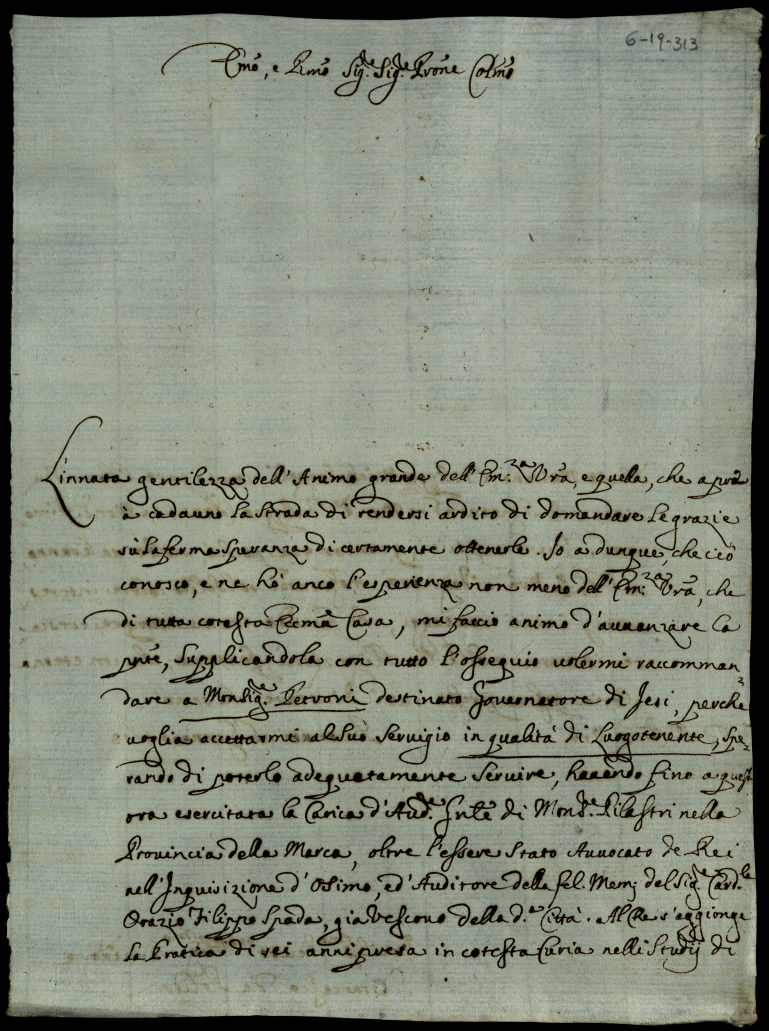 6-19-313
Emo, e Rmo Sig.re Sig.re Prone Colmo
L'innata gentilezza dell'Animo grande dell'Em.za Vra, e quella, che apre
à cadauno la strada di rendersi ardito di domandare le grazie
sù la ferma speranza di certamente ottenerle. Io adunque, che ciò
conosco, e ne hò anco l'esperienza non meno dell'Em.za Vra, che
di tutta cotesta Eccma Casa, mi faccio animo d'avvanzare la
pnte, supplicandola con tutto l'ossequio volermi raccomman
dare a Monsig.re Petroni destinato Governatore di Jesi, perche
voglia accettarmi al suo servigio in qualità di Luogotenente, spe
rando di poterlo adeguatamente servire, havendo fino a quest
ora esercitata la Carica d'Aud.re Gnle di Mons.re Pilastri nella
Provincia della Marca, oltre l'essere stato Avvocato de Rei
nell'Inquisizione d'Osimo, ed'Auditore della fel. Mem; del Sig.re Card.le
Orazio Filippo Spada, già Vescovo della d.a Città. Al che s'aggionge
la Pratica di sei anni presa in cotesta Curia nelli Studij di